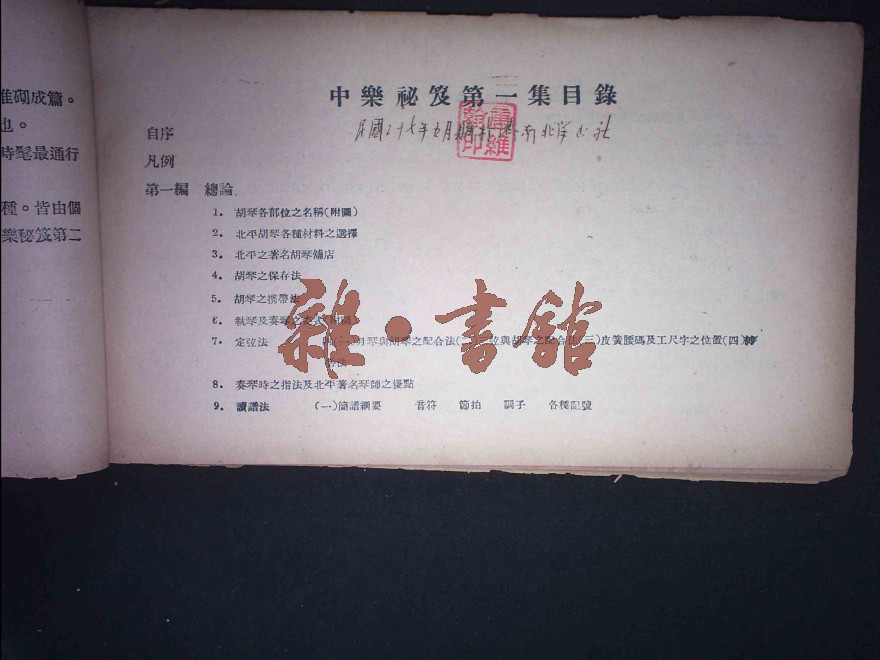 堆砌成篇。
也。
時髦最通行
種。皆由個
樂秘笈第二
中樂祕笈第一集目錄
民國二十七年五月
自序
凡例
第一編 總論
1. 胡琴各部位之名稱(附圖)
2. 北平胡琴各種材料之選擇
3. 北平之著名胡琴鋪店
4. 胡琴之保存法
5. 胡琴之携帶法
6. 執琴及奏琴之
7. 定弦法 琴與胡琴之配合法 與胡琴之配合 (三)皮簧腰碼及工尺字之位置(四)
8. 奏琴時之指法及北平著名琴師之優點
9. 讀譜法 (一)簡譜綱要 音符 節拍 調子 各種記號
雜·書館